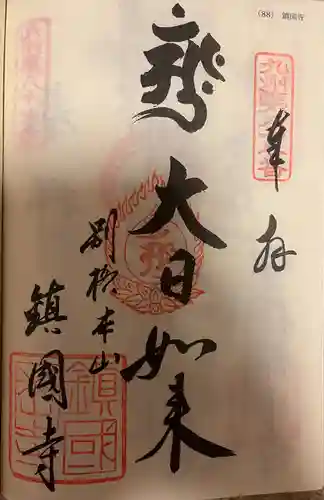 (88) 鎮国寺
奉拝
大日如来
別格本山
鎮國寺
鎮國